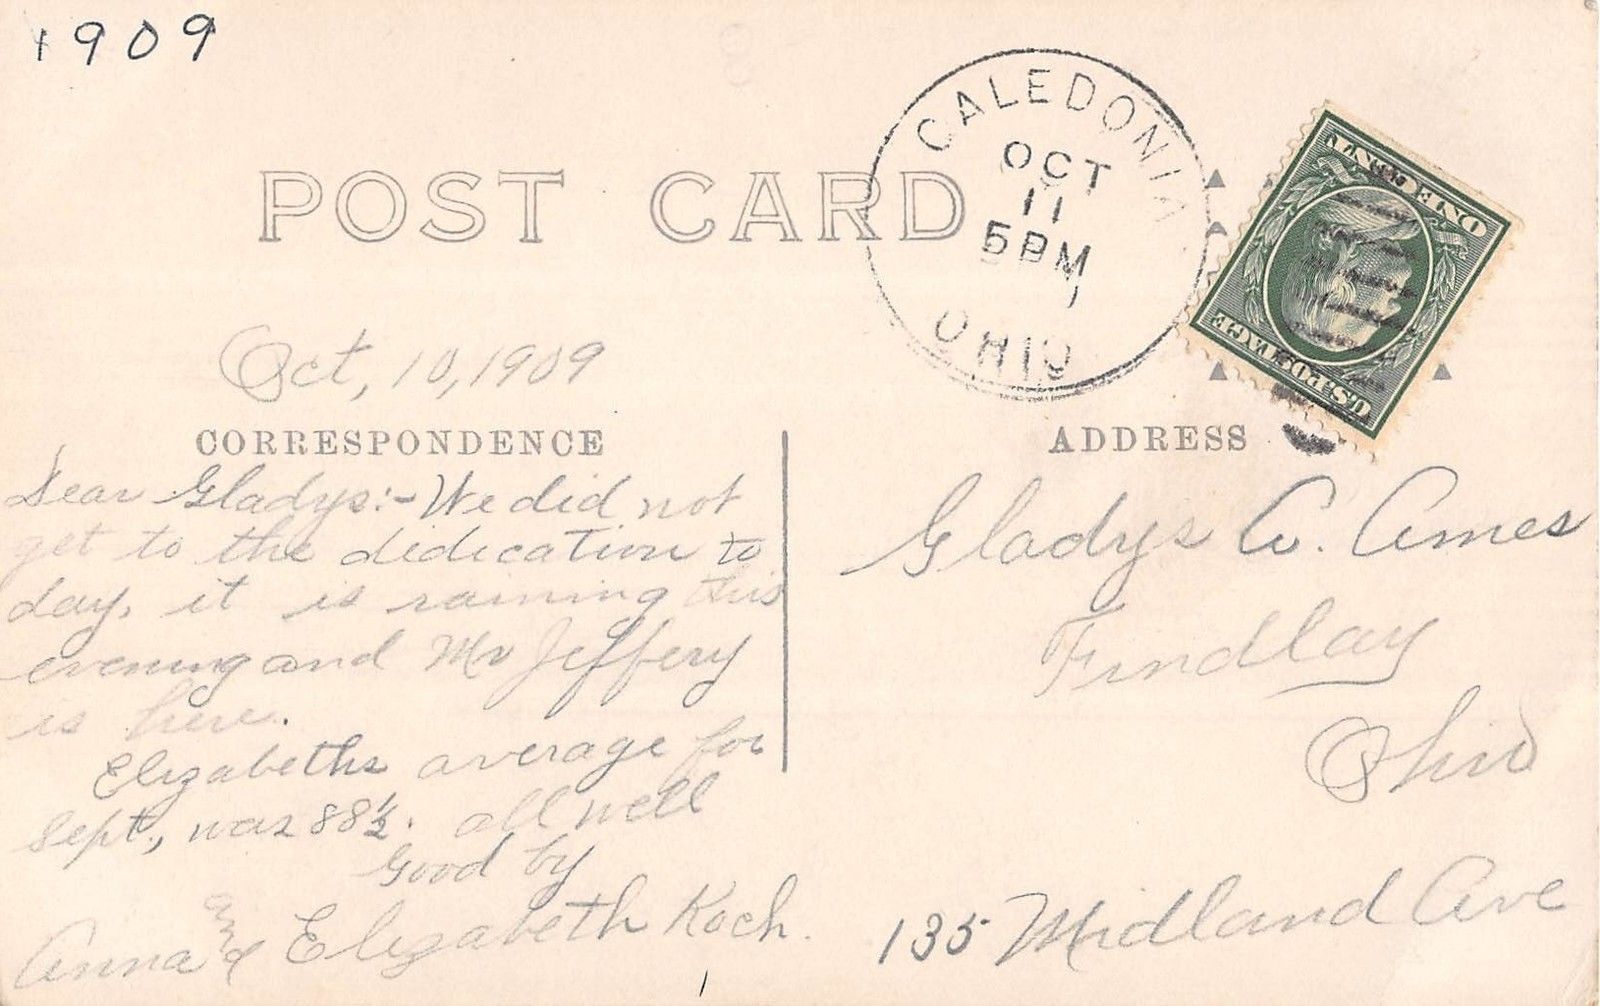 1909
POST CARD
CALEDONIA
OCT
11
5 PM
OHIO
ONE CENT
U.S. POSTAGE
Oct, 10, 1909
CORRESPONDENCE
Dear Gladys:- We did not
get to the didication to
day, it is raining this
evening and Mr Jeffery
is here.
Elizabeths average for
Sept., was 88½. all well
Good by
Anna and Elizabeth Koch.
ADDRESS
Gladys C. Ames
Findlay
Ohio
135 Midland Ave